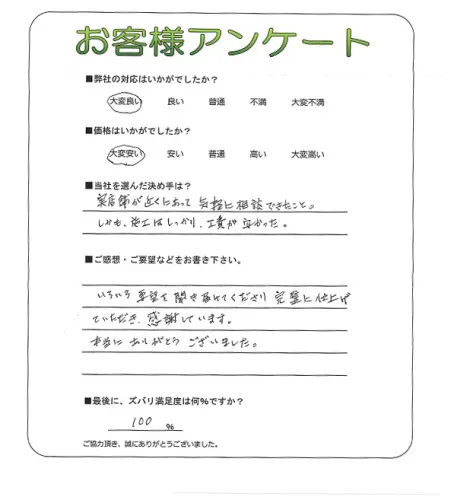 お客様アンケート
■弊社の対応はいかがでしたか？
大変良い 良い 普通 不満 大変不満
■価格はいかがでしたか？
大変安い 安い 普通 高い 大変高い
■当社を選んだ決め手は？
実店舗が近くにあって 気軽に相談できたこと。
しかも、施工はしっかり、工費が安かった。
■ご感想・ご要望などをお書き下さい。
いろいろ要望を聞き届けてくださり 完璧に仕上げ
ていただき、感謝しています。
本当に ありがとう ございました。
■最後に、ズバリ満足度は何％ですか？
100 ％
ご協力頂き、誠にありがとうございました。